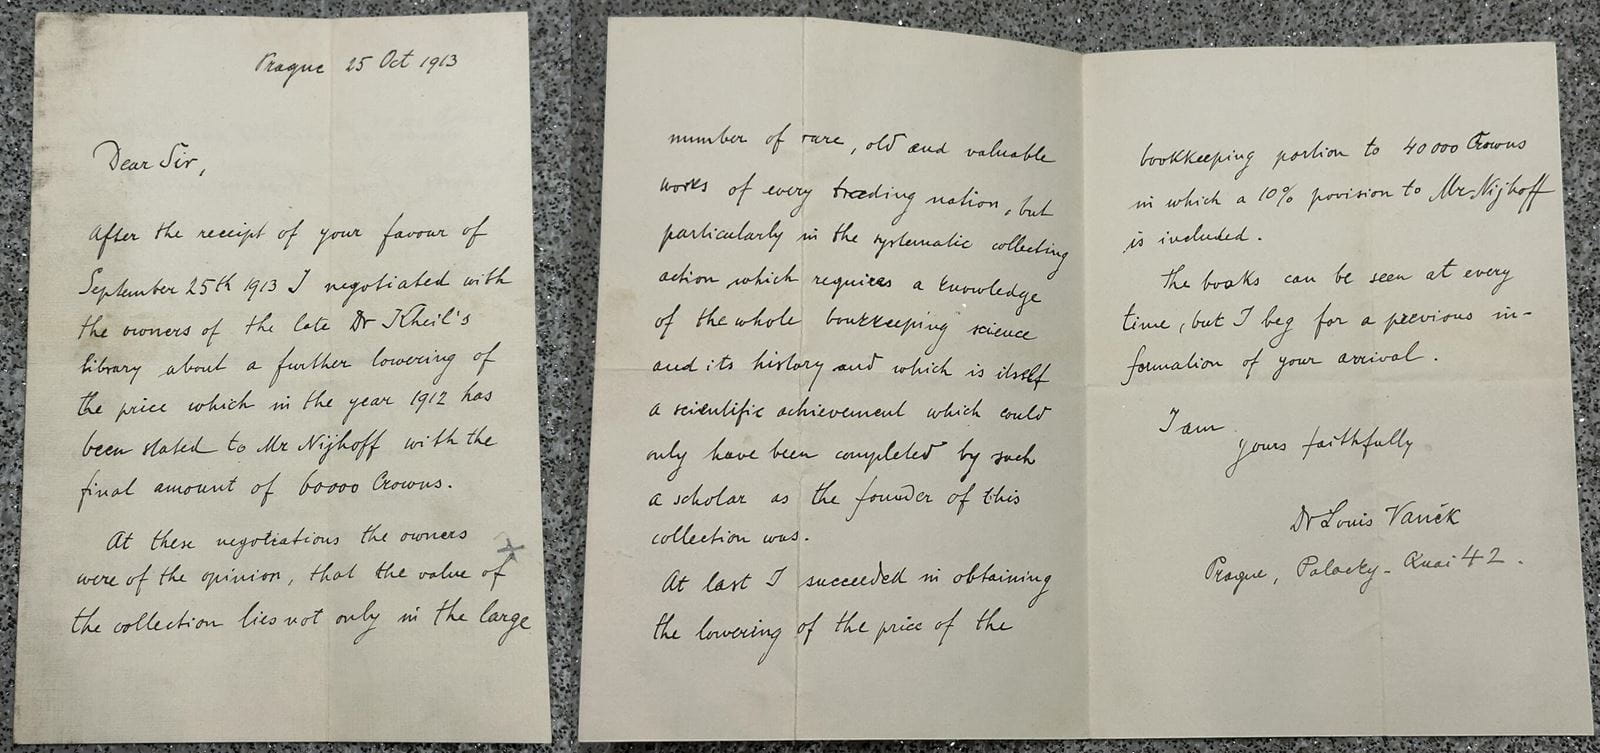 Prague 25 Oct 1913
Dear Sir,
After the receipt of your favour of
September 25th 1913 I negotiated with
the owners of the late Dr Kheil's
library about a further lowering of
the price which in the year 1912 has
been stated to Mr Nijhoff with the
final amount of 60000 Crowns.
At these negotiations the owners
were of the opinion, that the value of
the collection lies not only in the large
number of rare, old and valuable
works of every trading nation, but
particularly in the systematic collecting
action which requires a knowledge
of the whole bookkeeping science
and its history and which is itself
a scientific achievement which could
only have been completed by such
a scholar as the founder of this
collection was.
At last I succeeded in obtaining
the lowering of the price of the
bookkeeping portion to 40000 Crowns
in which a 10% provision to Mr Nijhoff
is included.
The books can be seen at every
time, but I beg for a previous in-
formation of your arrival.
I am
yours faithfully
Dr Louis Vaněk
Prague, Palacky-Quai 42.